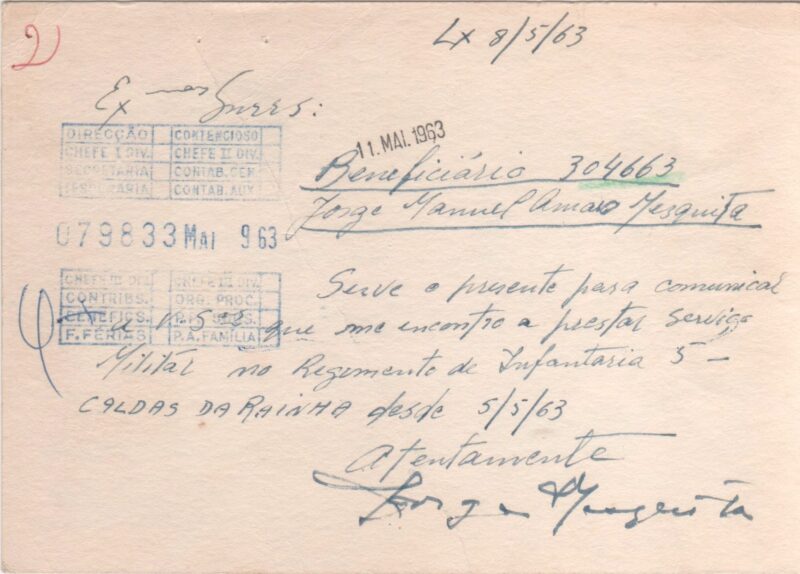 2)
Lx 8/5/63
Exmos Snrs:
DIRECÇÃO CONTENCIOSO
CHEFE I DIV. CHEFE II DIV.
SECRETARIA CONTAB. GEN.
TESOURARIA CONTAB. AUX.
11. MAI. 1963
Beneficiário 304663
Jorge Manuel Amaro Mesquita
079833 MAI 9 63
CHEFE III DIV. CHEFE IIII DIV.
CONTRIBS. ORG. PROC.
BENEFICS.
F. FÉRIAS P. A. FAMÍLIA
Serve o presente para comunicar
a V. S. que me encontro a prestar Serviço
Militár no Regimento de Infantaria 5 –
CALDAS DA RAINHA desde 5/5/63
Atentamente
Jorge Mesquita